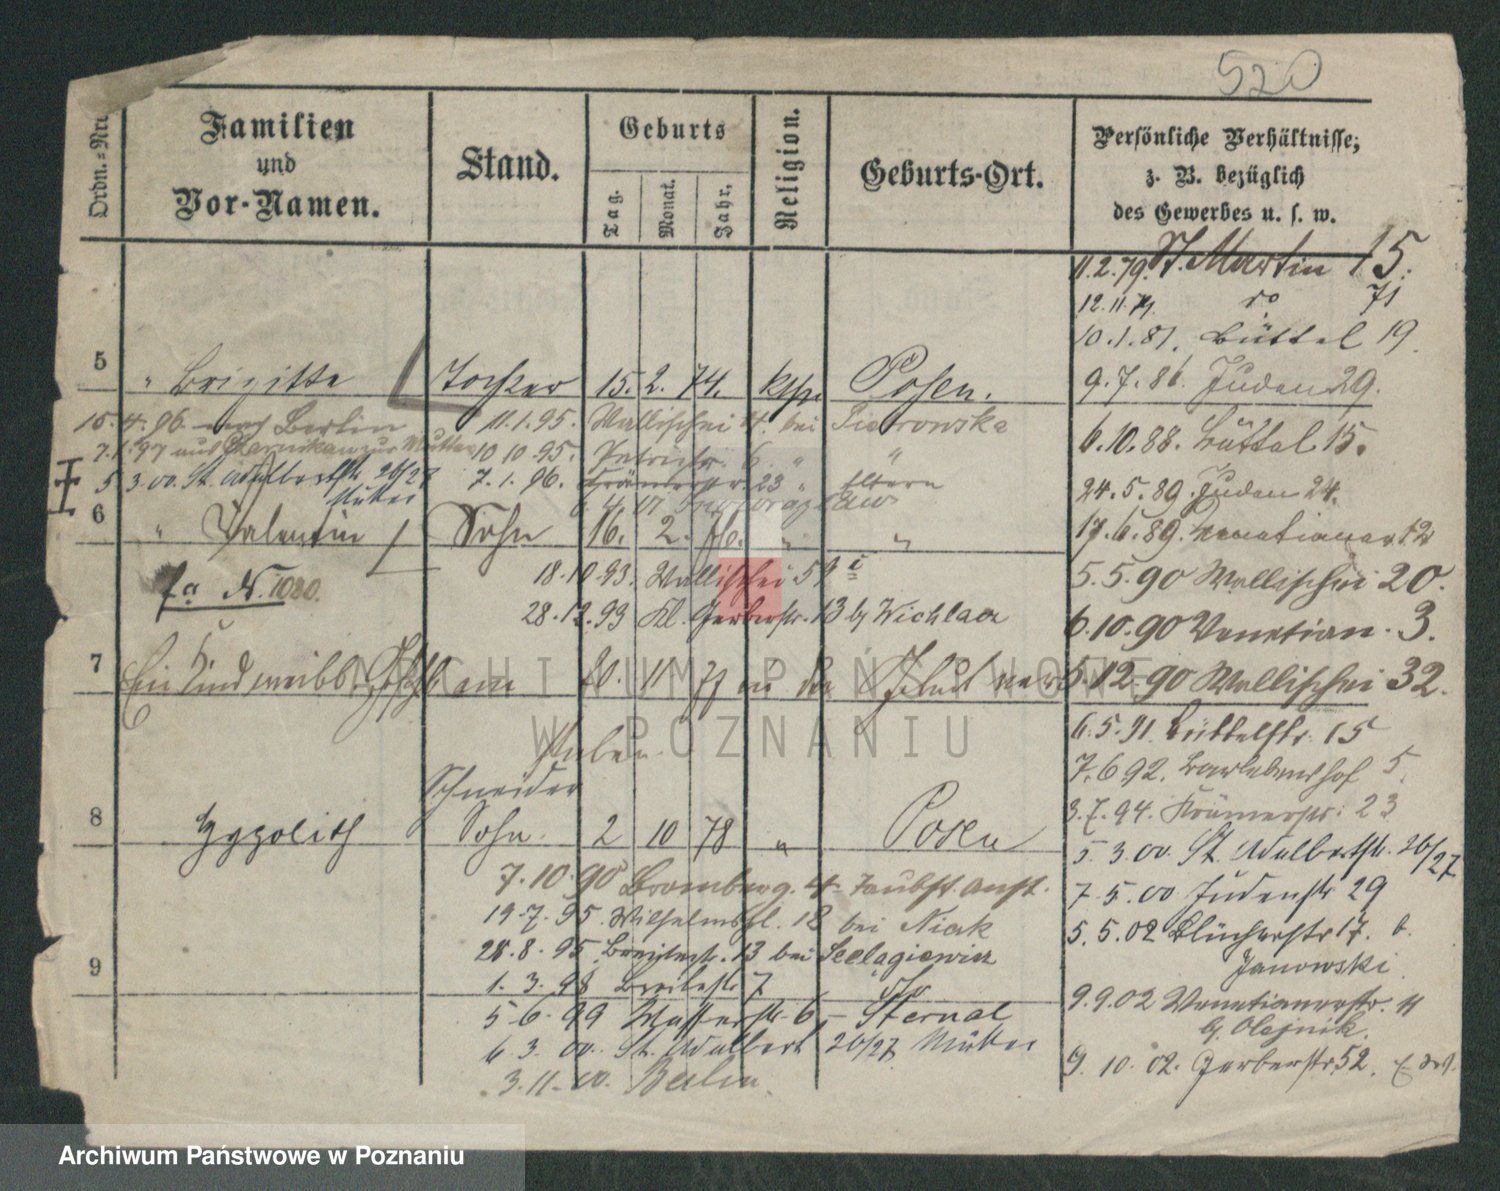 520
Ordn.=Nr.
Familien
und
Vor-Namen.
Stand.
Geburts
Tag.
Monat.
Jahr.
Religion.
Geburts-Ort.
Persönliche Verhältnisse,
z. B. bezüglich
des Gewerbes u. s. w.
11.2.79. St. Martin 15.
12.11.79. do 71
10.1.81. Büttel 19.
9.7.86. Juden 29.
5 " Brigitte Tochter 15. 2. 74. kth. Posen.
15.4.96. nach Berlin 11.1.95. Wallischei 4. bei Piotrowska
6.10.88. Büttel 15.
7.1.97 aus Czarnikau zur Mutter 10.10.95. 6 " "
5 3.00. St. Adalbertstr. 26/27 7.1.96. Krämerstr. 23 " Eltern
Mutter
24.5.89. Juden 24.
6 " Valentin Sohn 16. 2. 76. " "
17.6.89. Venetianer 12
fa N. 1080.
18.10.93. Wallischei 59
5.5.90 Wallischei 20.
28.12.93 Kl. Gerberstr. 13 b/ Wichlacz
6.10.90 Venetian. 3.
7 Ein Kind weibl. Geschl. am 20. 11 77 in der Geburt ver
5.12.90 Wallischei 32.
6.5.91. Büttelstr. 15
7.6.92. Barlebenshof 5.
Schneider
3.7.94. Krämerstr. 23
8 Hypolith Sohn. 2 10 78 " Posen
5.3.00. St. Adalbertstr. 26/27
7.10.90 Bromberg. 4 Taubst. Anst.
7.5.00 Judenstr 29
19.7.95. Wilhelmspl. 18 bei Niak
5.5.02 Blücherstr 17. b.
28.8.95. Breitestr. 13 bei Szelagiewicz
Janowski
9
1.3.98 Breitestr 7 do
9.9.02 Venetianerstr. 4
5.6.99 Wasserstr. 6, Sternal
b/ Olejnik.
6.3.00. St. Adalbert 26/27 Mutter
9.10.02. Gerberstr. 52.
3.11.00. Berlin.
ARCHIWUM PAŃSTWOWE
W POZNANIU
Archiwum Państwowe w Poznaniu